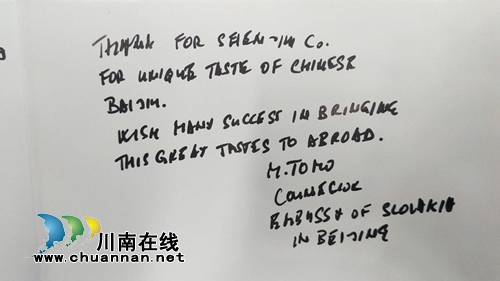 THANK FOR SHEN-JIU Co.
FOR UNIQUE TASTE OF CHINESE
BAIJIU.
WISH MANY SUCCESS IN BRINGING
THIS GREAT TASTES TO ABROAD.
M. TOMO
COUNSELOR
EMBASSY OF SLOVAKIA
IN BEIJING
川南在线
www.chuannan.net